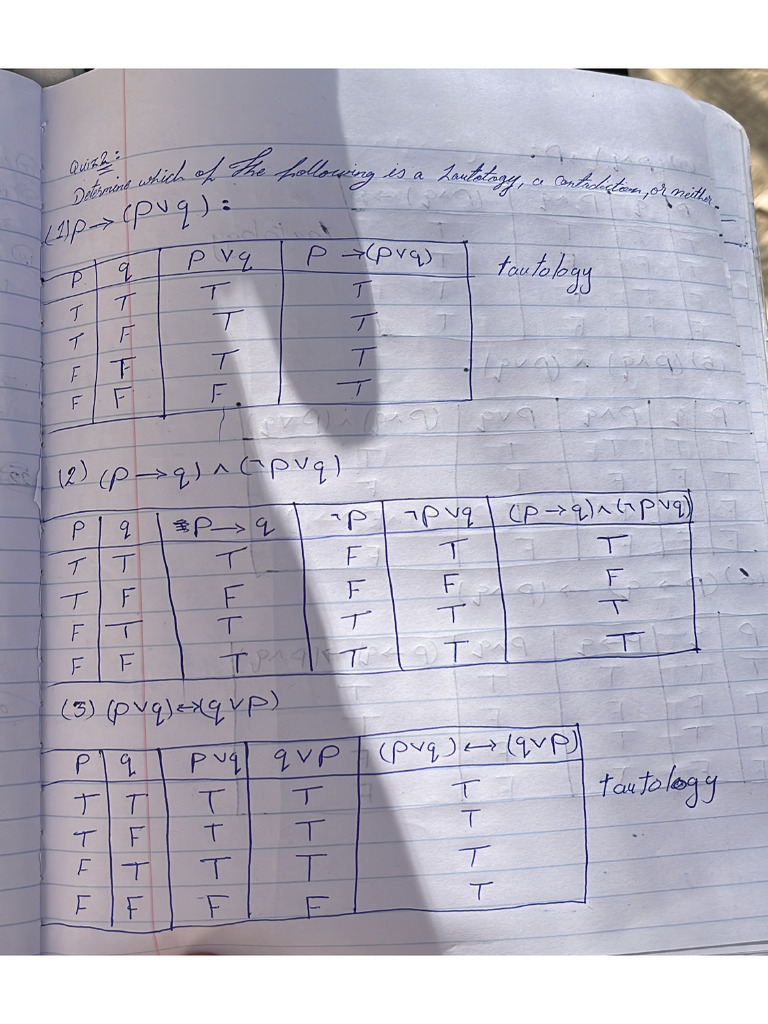 Quiz 2:
Determine which of the following is a tautology, a contradiction, or neither.
(1) p → (p ∨ q) :
p q p ∨ q p → (p ∨ q) tautology
T T T T
T F T T
F T T T
F F F T
(2) (p → q) ∧ (¬p ∨ q)
p q p → q ¬p ¬p ∨ q (p → q) ∧ (¬p ∨ q)
T T T F T T
T F F F F F
F T T T T T
F F T T T T
(3) (p ∨ q) ↔ (q ∨ p)
p q p ∨ q q ∨ p (p ∨ q) ↔ (q ∨ p)
tautology
T T T T T
T F T T T
F T T T T
F F F F T